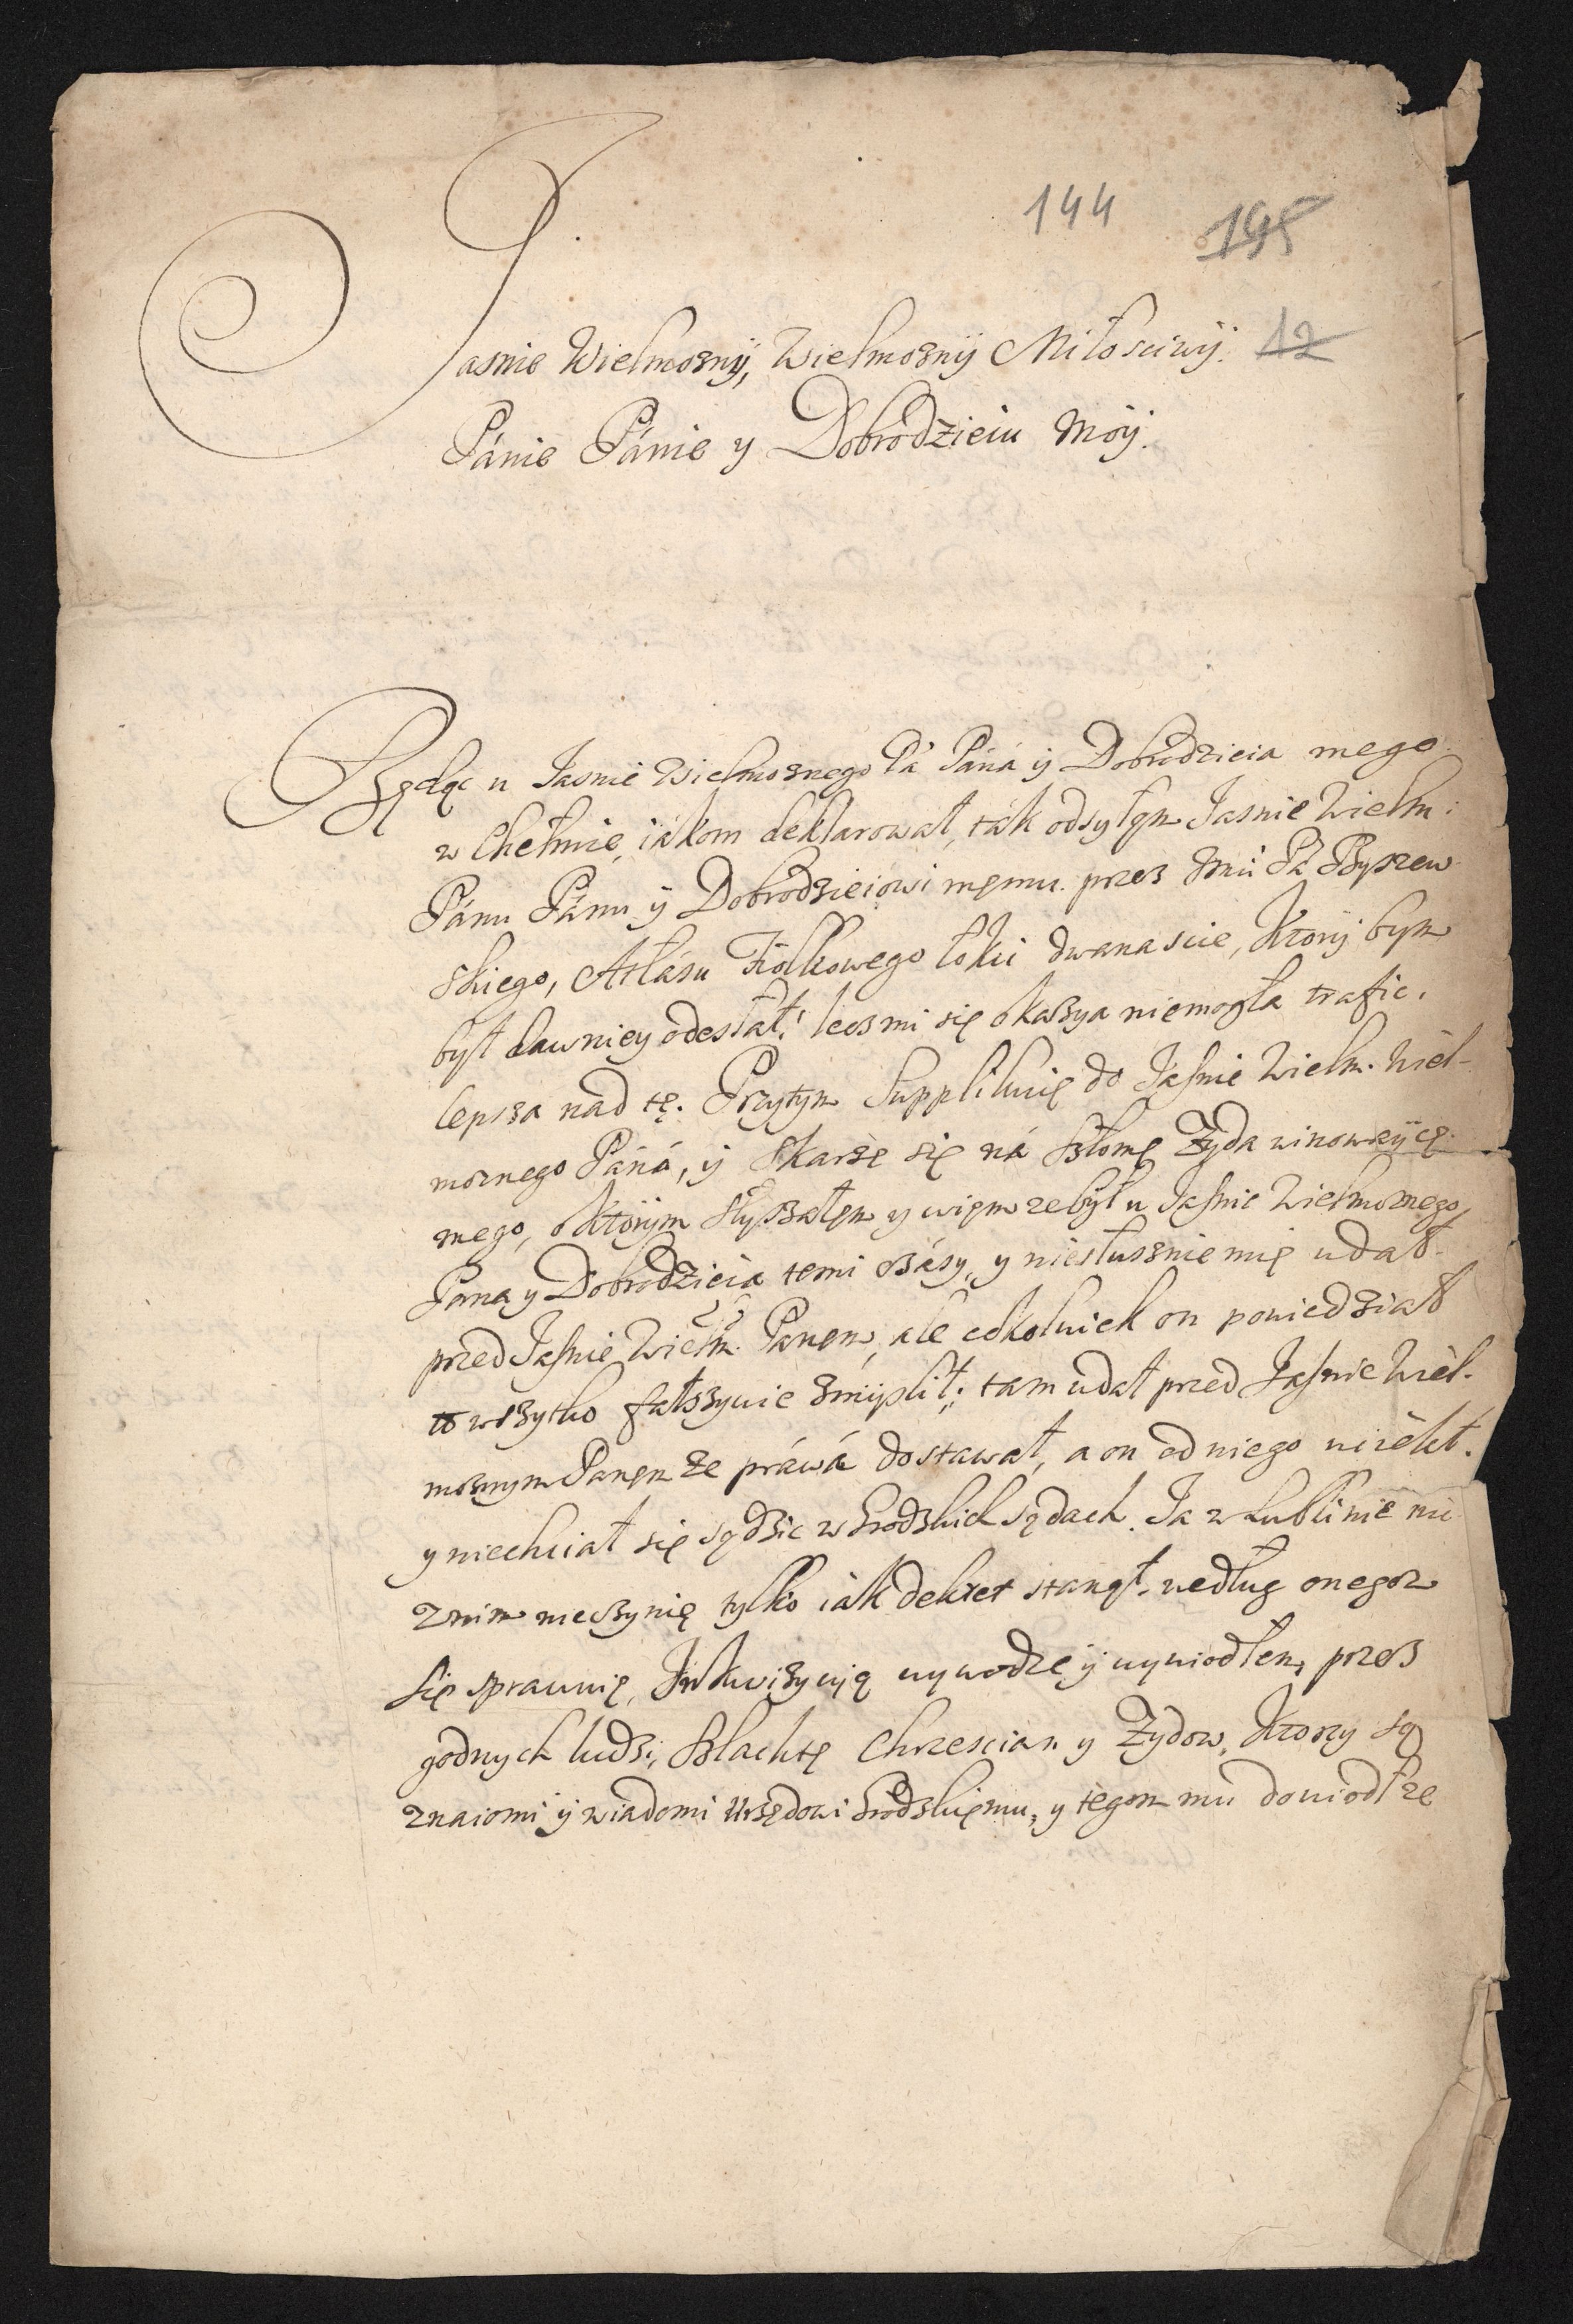 144 195
Jasnie Wielmozny, Wielmozny Miłosciwy. 12
Pánie Pánie y Dobrodzieiu Moy.
Będąc u Iasnie Wielmoznego Pá Páná y Dobrodzieia mego
w Chełmie, iákom deklarował, ták odsyłąm Iasnie Wielm:
Pánu Pánu y Dobrodzieiowi męmu. przez Pá
skiego, Atłásu Fiołkowego łokci dwanascie, Ktory bym
był dawniey odesłał, lecz mi się okazya niemogła trafic.
lepsza nad tę. Przytym Supplikuię do Jasnie Wielm. Wiel-
moznego Páná, y Skarzę się ná Szlomę Zyda winowaycę
mego, o ktorym słyszałęm y więm ze był u Jasnie Wielmoznego
Pana y Dobrodzieia temi czásy, y niesłusznie mię udał
przed Jasnie Wielm. Panęm, ale cokolwiek on powiedział
to wszytko fałszywie zmyslił; tam udał przed Jasnie Wiel-
moznym Panęm ze práwá dostawał, a on od niego uiekł.
y niechciał się sądzic w Grodzkich sądach. Ia w Lublinie nic
z nim nieczynię tylko iák dekret stanął. według onegoz
się sprawuię, Inkwizycyią wywodzę y wywiodłem, przez
godnych ludzi, Szlachtę Chrzescian y Zydow, Ktorzy są
znaiomi y wiadomi Urzędowi Grodzkięmu, y tegom mu dowiodł ze